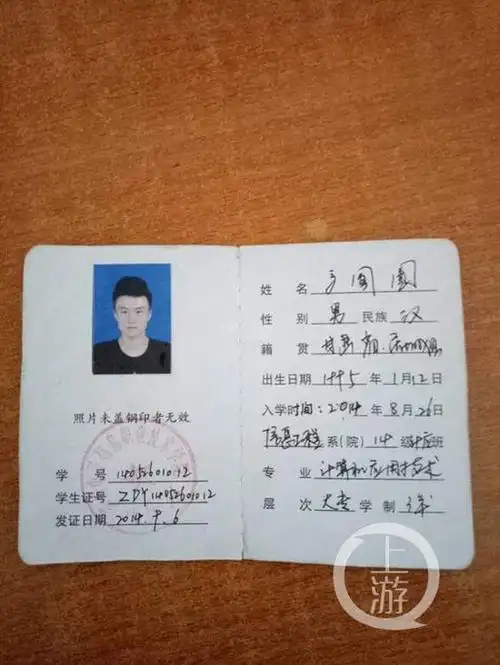 照片未盖钢印者无效
学 号 1405260112
学生证号 ZDY1405260112
发证日期 2014.9.6
姓 名
性 别 男 民族 汉
籍 贯 甘肃
出生日期 1995 年 1月12日
入学时间:2014年8月26日
信息工程系(院)14级计应班
专 业 计算机应用技术
层 次 大专 学 制 3年
上游